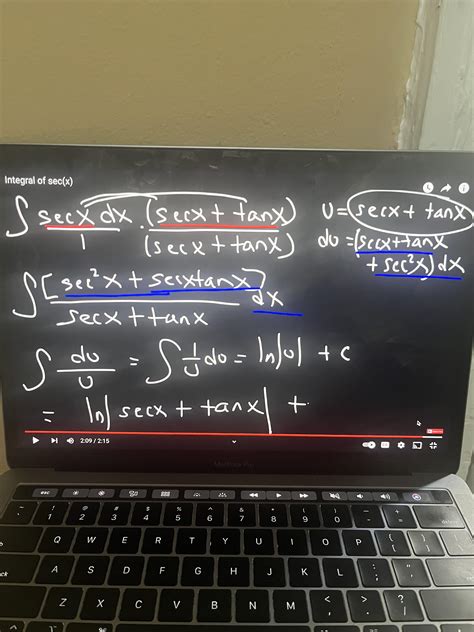 Integral of sec(x)
∫ secx dx/1 · (secx + tanx)/(secx + tanx)
u = (secx + tanx)
du = (secx+tanx + sec²x) dx
∫ [sec²x + secxtanx]/secx + tanx dx
∫ du/u = ∫ 1/u du = ln|u| + c
= ln|secx + tanx| +
2:09 / 2:15
MacBook Pro
esc
! @ # $ % ^ & * ( ) _ +
1 2 3 4 5 6 7 8 9 0 - =
Q W E R T Y U I O P { [
A S D F G H J K L : ; " '
Z X C V B N M < >